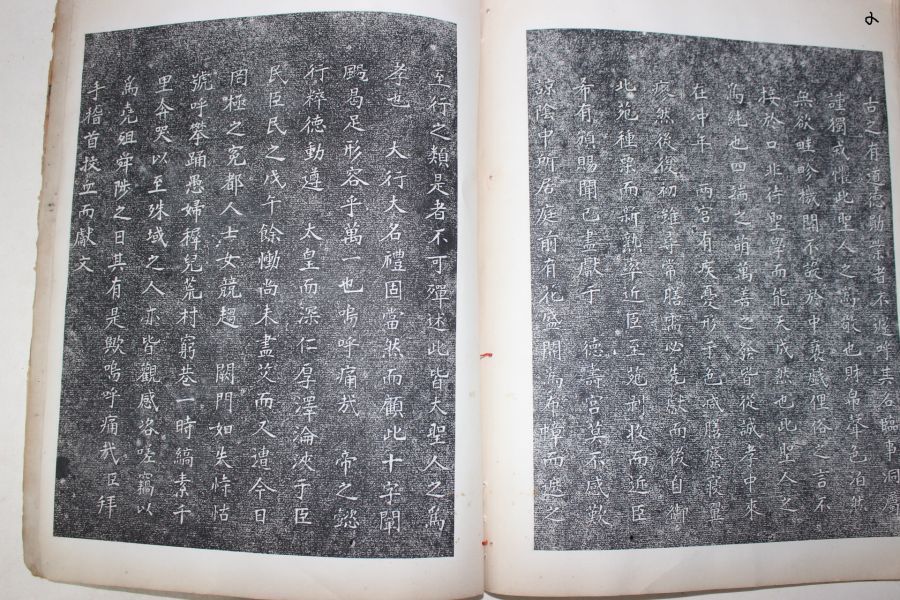 古之有道德勛業者不疲其右臨事洞屬
謹獨戒懼此聖人之篤敬也財帛聲色泊然
無欲畦畛機關不設於中褻戱俚俗之言不
接於口非待聖學而能天成然也此聖人之
篤純也四端之萌萬善之發皆從誠孝中來
在中年 兩宮有疾憂形于色減膳廢寢
瘳然後復初雖尋常膳需必先獻而後自御
此苑種栗而新熟率近臣至苑剝收而近臣
希有預賜聞已盡獻于 德壽宮莫不感歎
諒陰中所居庭前有花盛開爲布幛而遮之
至行之類是者不可殫述此皆大聖人之爲
孝也 大行大名禮固當然而顧此十字闡
颺曷足形容乎萬一也嗚呼痛哉 帝之懿
行粹德動遵 太皇而深仁厚澤淪浹于臣
民臣民之戊午餘慟尚未盡艾而又遭今日
罔極之寃都人士女競趨 闕門如失恃怙
號呼攀踊愚婦穉兒荒村窮巷一時縞素千
里奔哭以至殊域之人亦皆觀感咨嗟竊以
爲堯殂舜陟之日其有是歟嗚呼痛哉臣拜
手稽首抆血而獻文